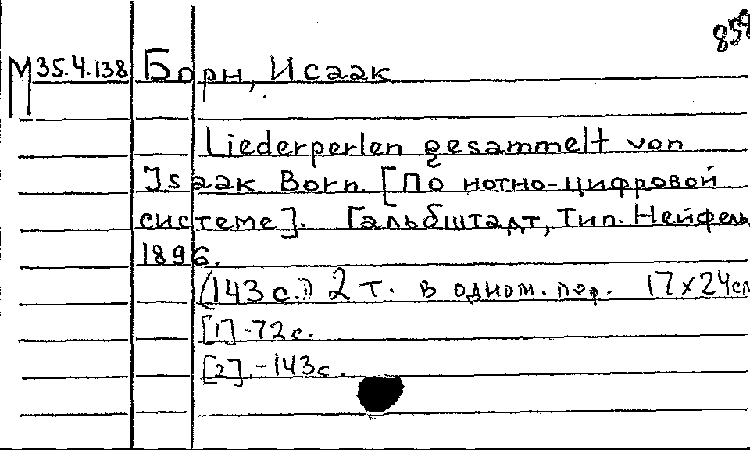 859
М 35.4.138 Борн, Исаак
Liederperlen gesammelt von
Isaak Born. [По нотно-цифровой
системе]. Гальбштадт, Тип. Нейфель
1896.
(143 с.) 2 т. в одном. пер. 17 x 24см
[1] - 72 с.
[2]. - 143 с.